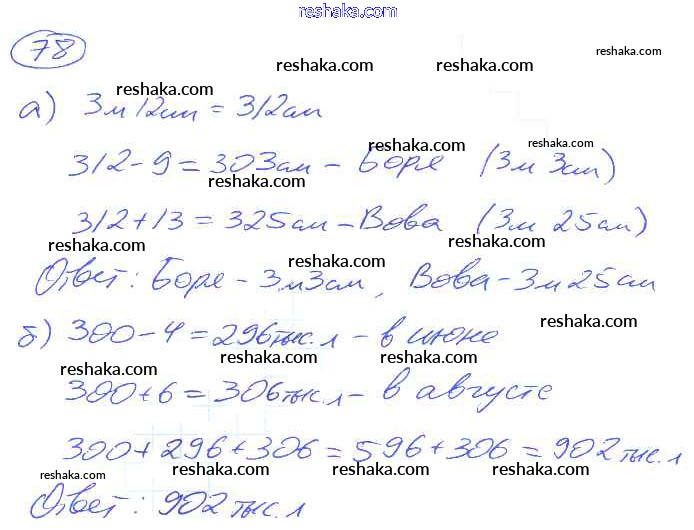 reshaka.com
78
reshaka.com reshaka.com reshaka.com
а) 3м12см = 312см
reshaka.com
reshaka.com reshaka.com
312 - 9 = 303см - Боря (3м 3см)
reshaka.com
312 + 13 = 325см - Вова (3м 25см)
reshaka.com reshaka.com
Ответ: Боря - 3м3см, Вова - 3м25см
reshaka.com
б) 300 - 4 = 296тыс.л - в июне
reshaka.com reshaka.com reshaka.com
300 + 6 = 306тыс.л - в августе
300 + 296 + 306 = 596 + 306 = 902тыс.л
reshaka.com reshaka.com reshaka.com reshaka.com
Ответ: 902тыс.л
reshaka.com